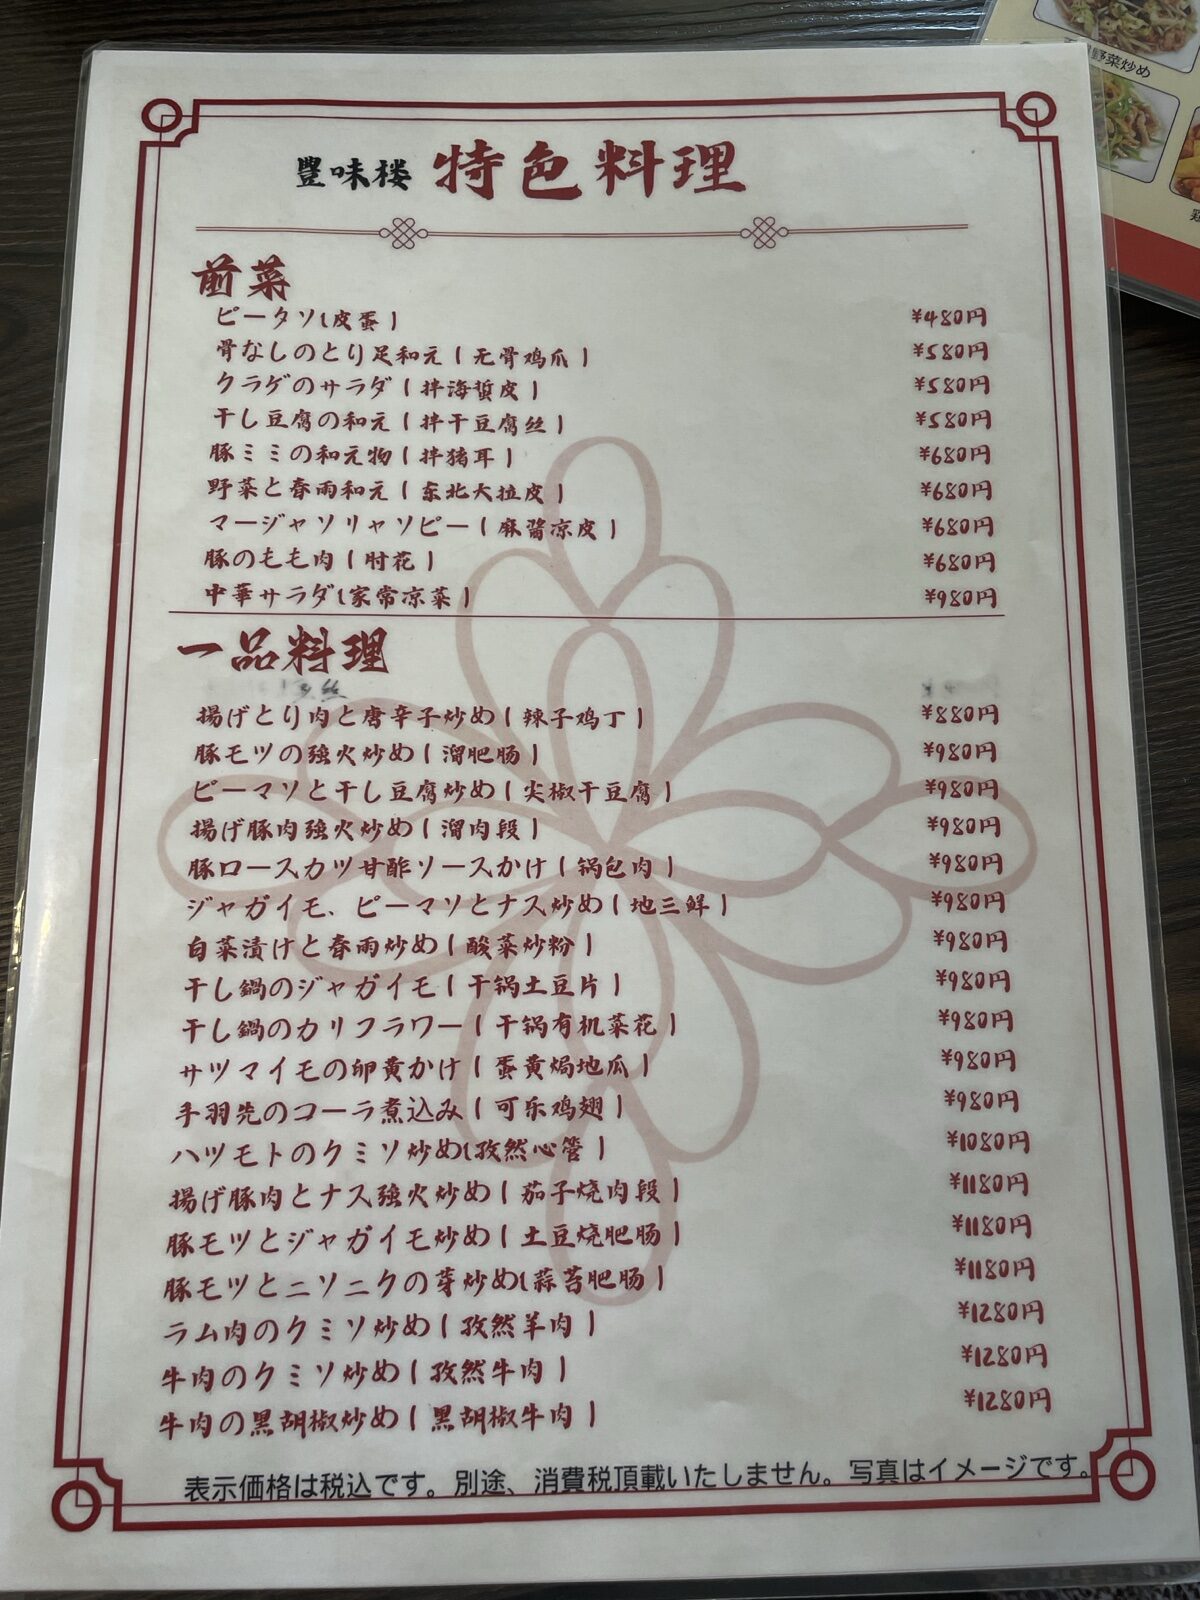 豐味楼 特色料理
前菜
ピータソ(皮蛋)
¥480円
骨なしのとり足和え(无骨鸡爪)
¥580円
クラゲのサラダ(拌海蜇皮)
¥580円
干し豆腐の和え(拌干豆腐丝)
¥580円
豚ミミの和え物(拌猪耳)
¥680円
野菜と春雨和え(东北大拉皮)
¥680円
マージャソリャソピー(麻酱凉皮)
¥680円
豚のもも肉(肘花)
¥680円
中華サラダ(家常凉菜)
¥980円
一品料理
揚げとり肉と唐辛子炒め(辣子鸡丁)
¥880円
豚モツの強火炒め(溜肥肠)
¥980円
ピーマソと干し豆腐炒め(尖椒干豆腐)
¥980円
揚げ豚肉強火炒め(溜肉段)
¥980円
豚ロースカツ甘酢ソースかけ(锅包肉)
¥980円
ジャガイモ、ピーマソとナス炒め(地三鲜)
¥980円
白菜漬けと春雨炒め(酸菜炒粉)
¥980円
干し鍋のジャガイモ(干锅土豆片)
¥980円
干し鍋のカリフラワー(干锅有机菜花)
¥980円
サツマイモの卵黄かけ(蛋黄焗地瓜)
¥980円
手羽先のコーラ煮込み(可乐鸡翅)
¥980円
ハツモトのクミソ炒め(孜然心管)
¥1080円
揚げ豚肉とナス強火炒め(茄子烧肉段)
¥1180円
豚モツとジャガイモ炒め(土豆烧肥肠)
¥1180円
豚モツとニソニクの芽炒め(蒜苔肥肠)
¥1180円
ラム肉のクミソ炒め(孜然羊肉)
¥1280円
牛肉のクミソ炒め(孜然牛肉)
¥1280円
牛肉の黒胡椒炒め(黑胡椒牛肉)
¥1280円
表示価格は税込です。別途、消費税頂載いたしません。写真はイメージです。
野菜炒め